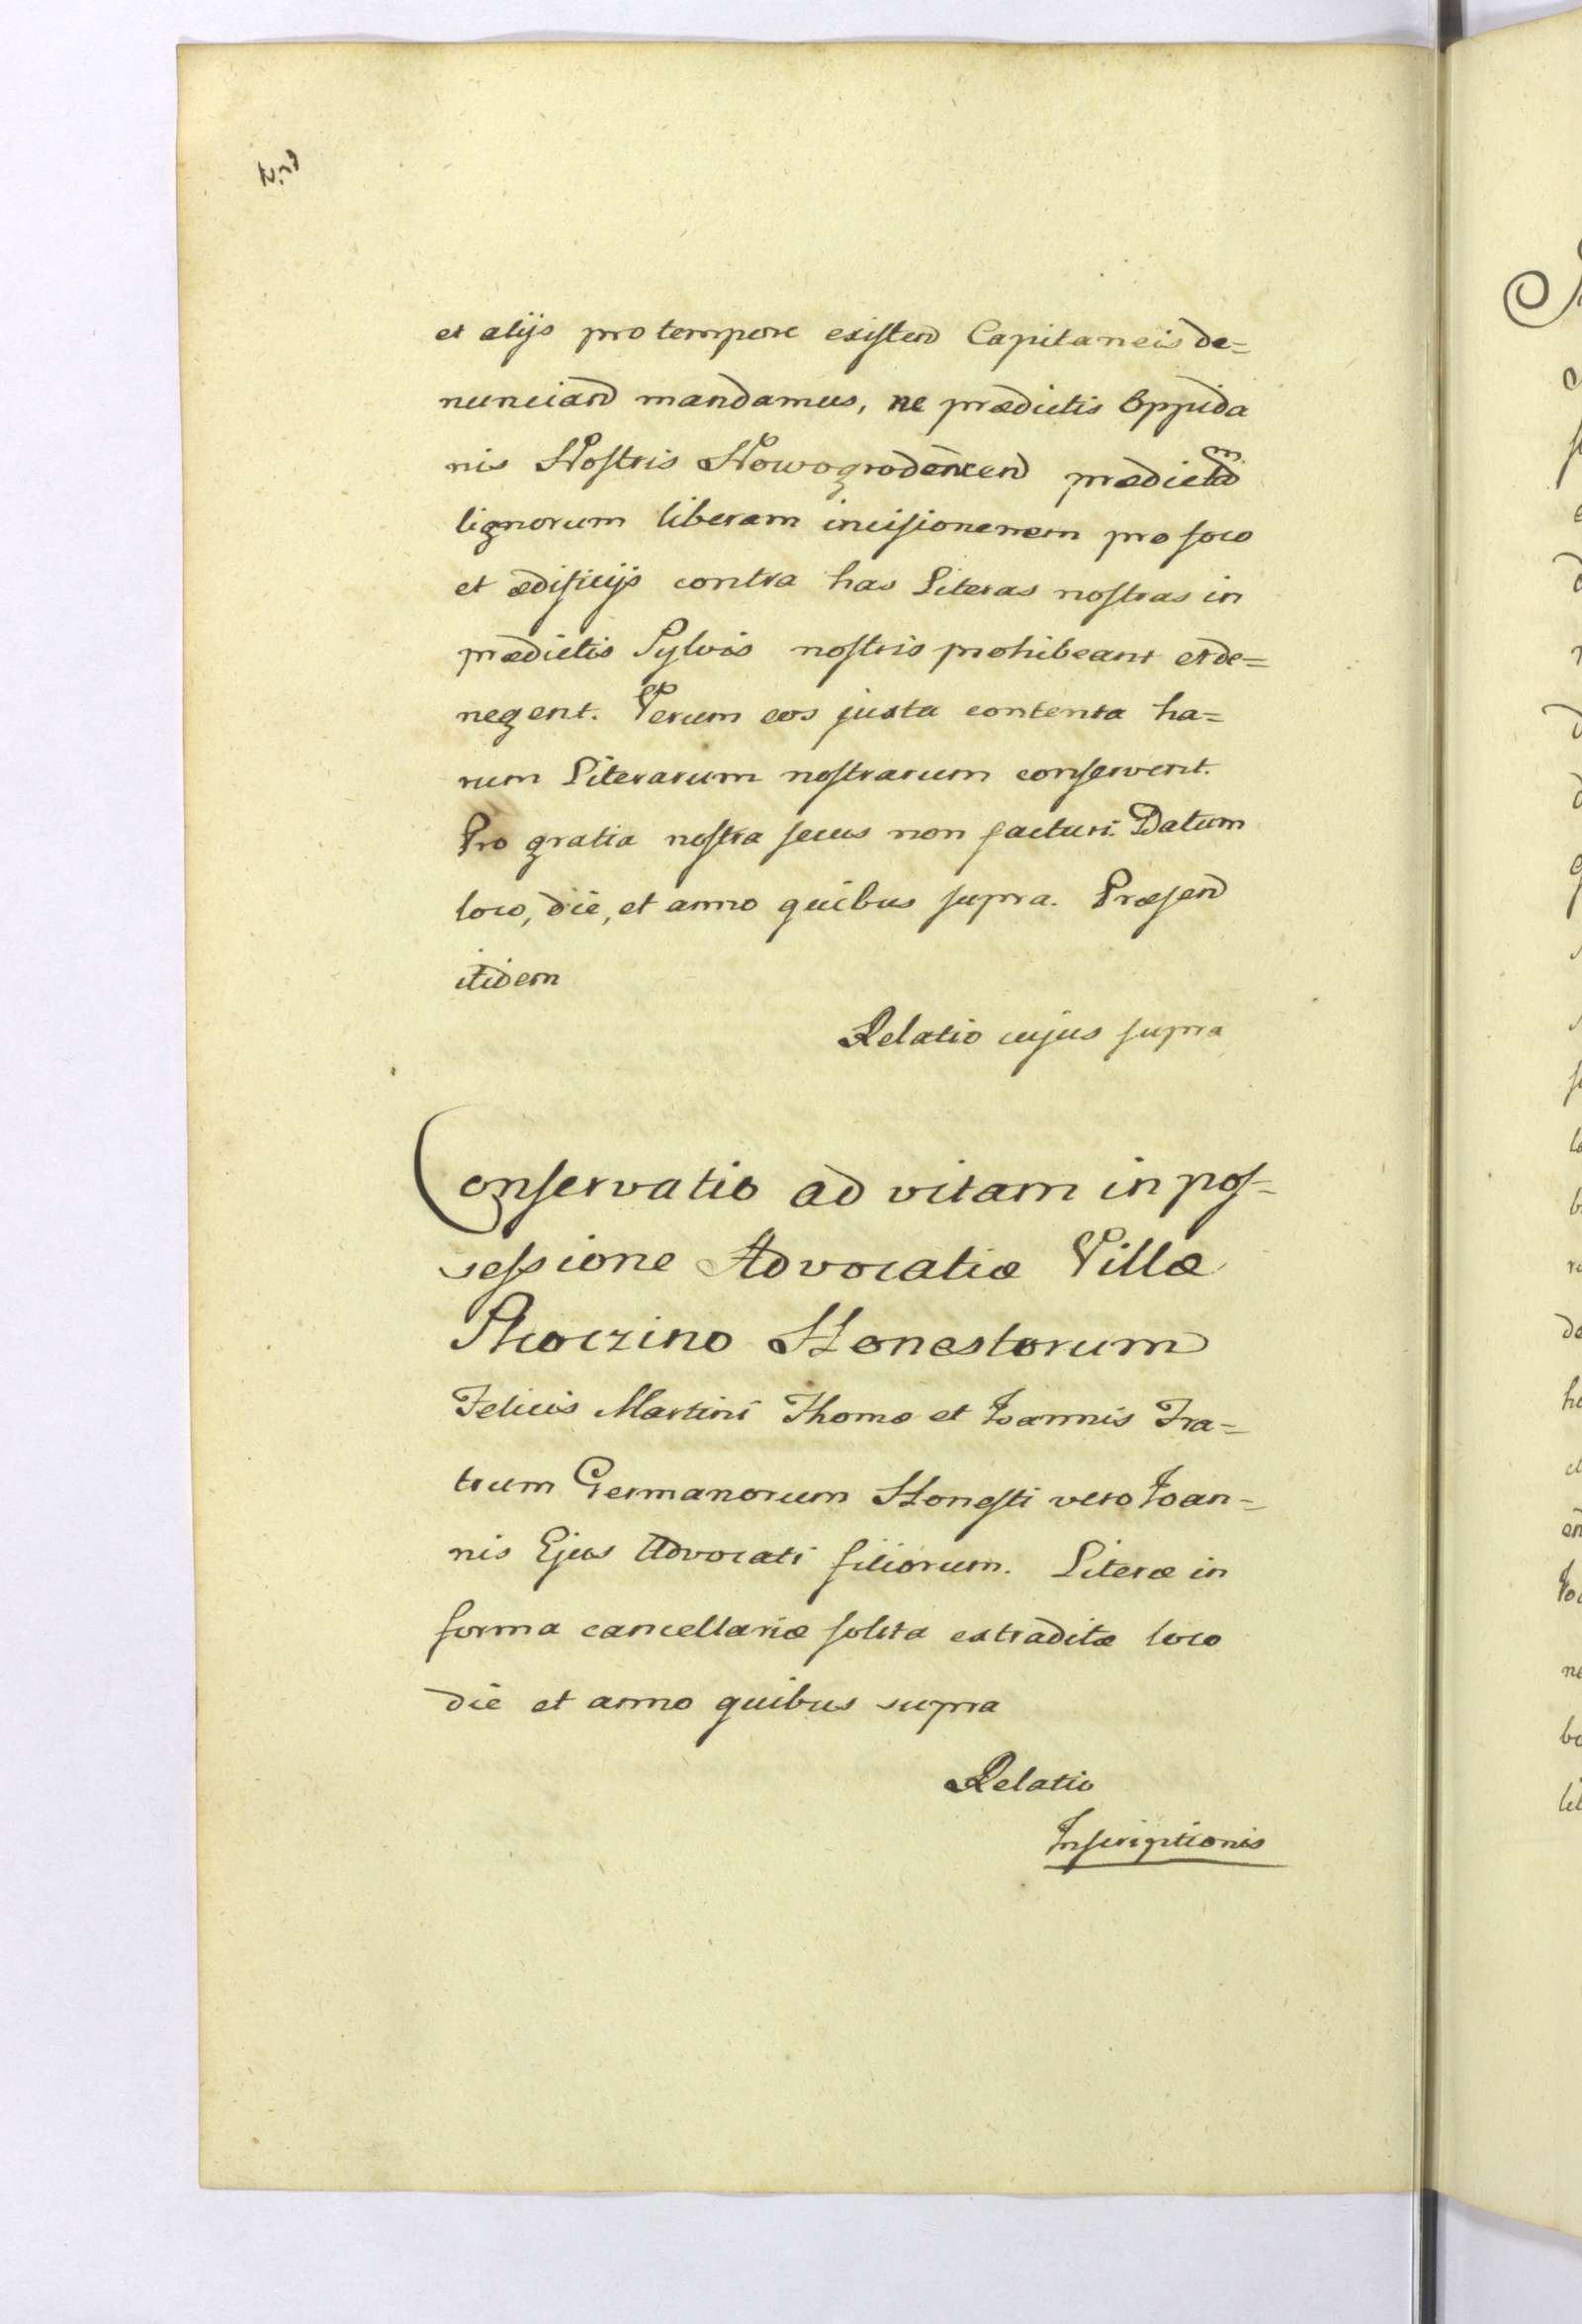 et alijs pro tempore existend Capitaneis de=
nunciand mandamus, ne prædictis Oppida
nis Nostris Nowogrodencend prædictam
lignorum liberam incisionemem pro foco
et ædificijs contra has Literas nostras in
prædictis Sylvis nostris prohibeant et de=
negent. Verum eos juxta contenta ha=
rum Literarum nostrarum conservent.
Pro gratia nostra secus non facturi. Datum
loco, die, et anno quibus supra. Præsend
itidem
Relatio cujus supra
Conservatio ad vitam in pos=
sessione Advocatiæ Villæ
Honestorum
Felicis Martini Thomæ et Joannis Fra=
trum Germanorum Honesti vero Joan=
nis Ejus Advocati filiorum. Literæ in
forma cancellariæ solita extraditæ loco
die et anno quibus supra
Relatio
Inscriptionis